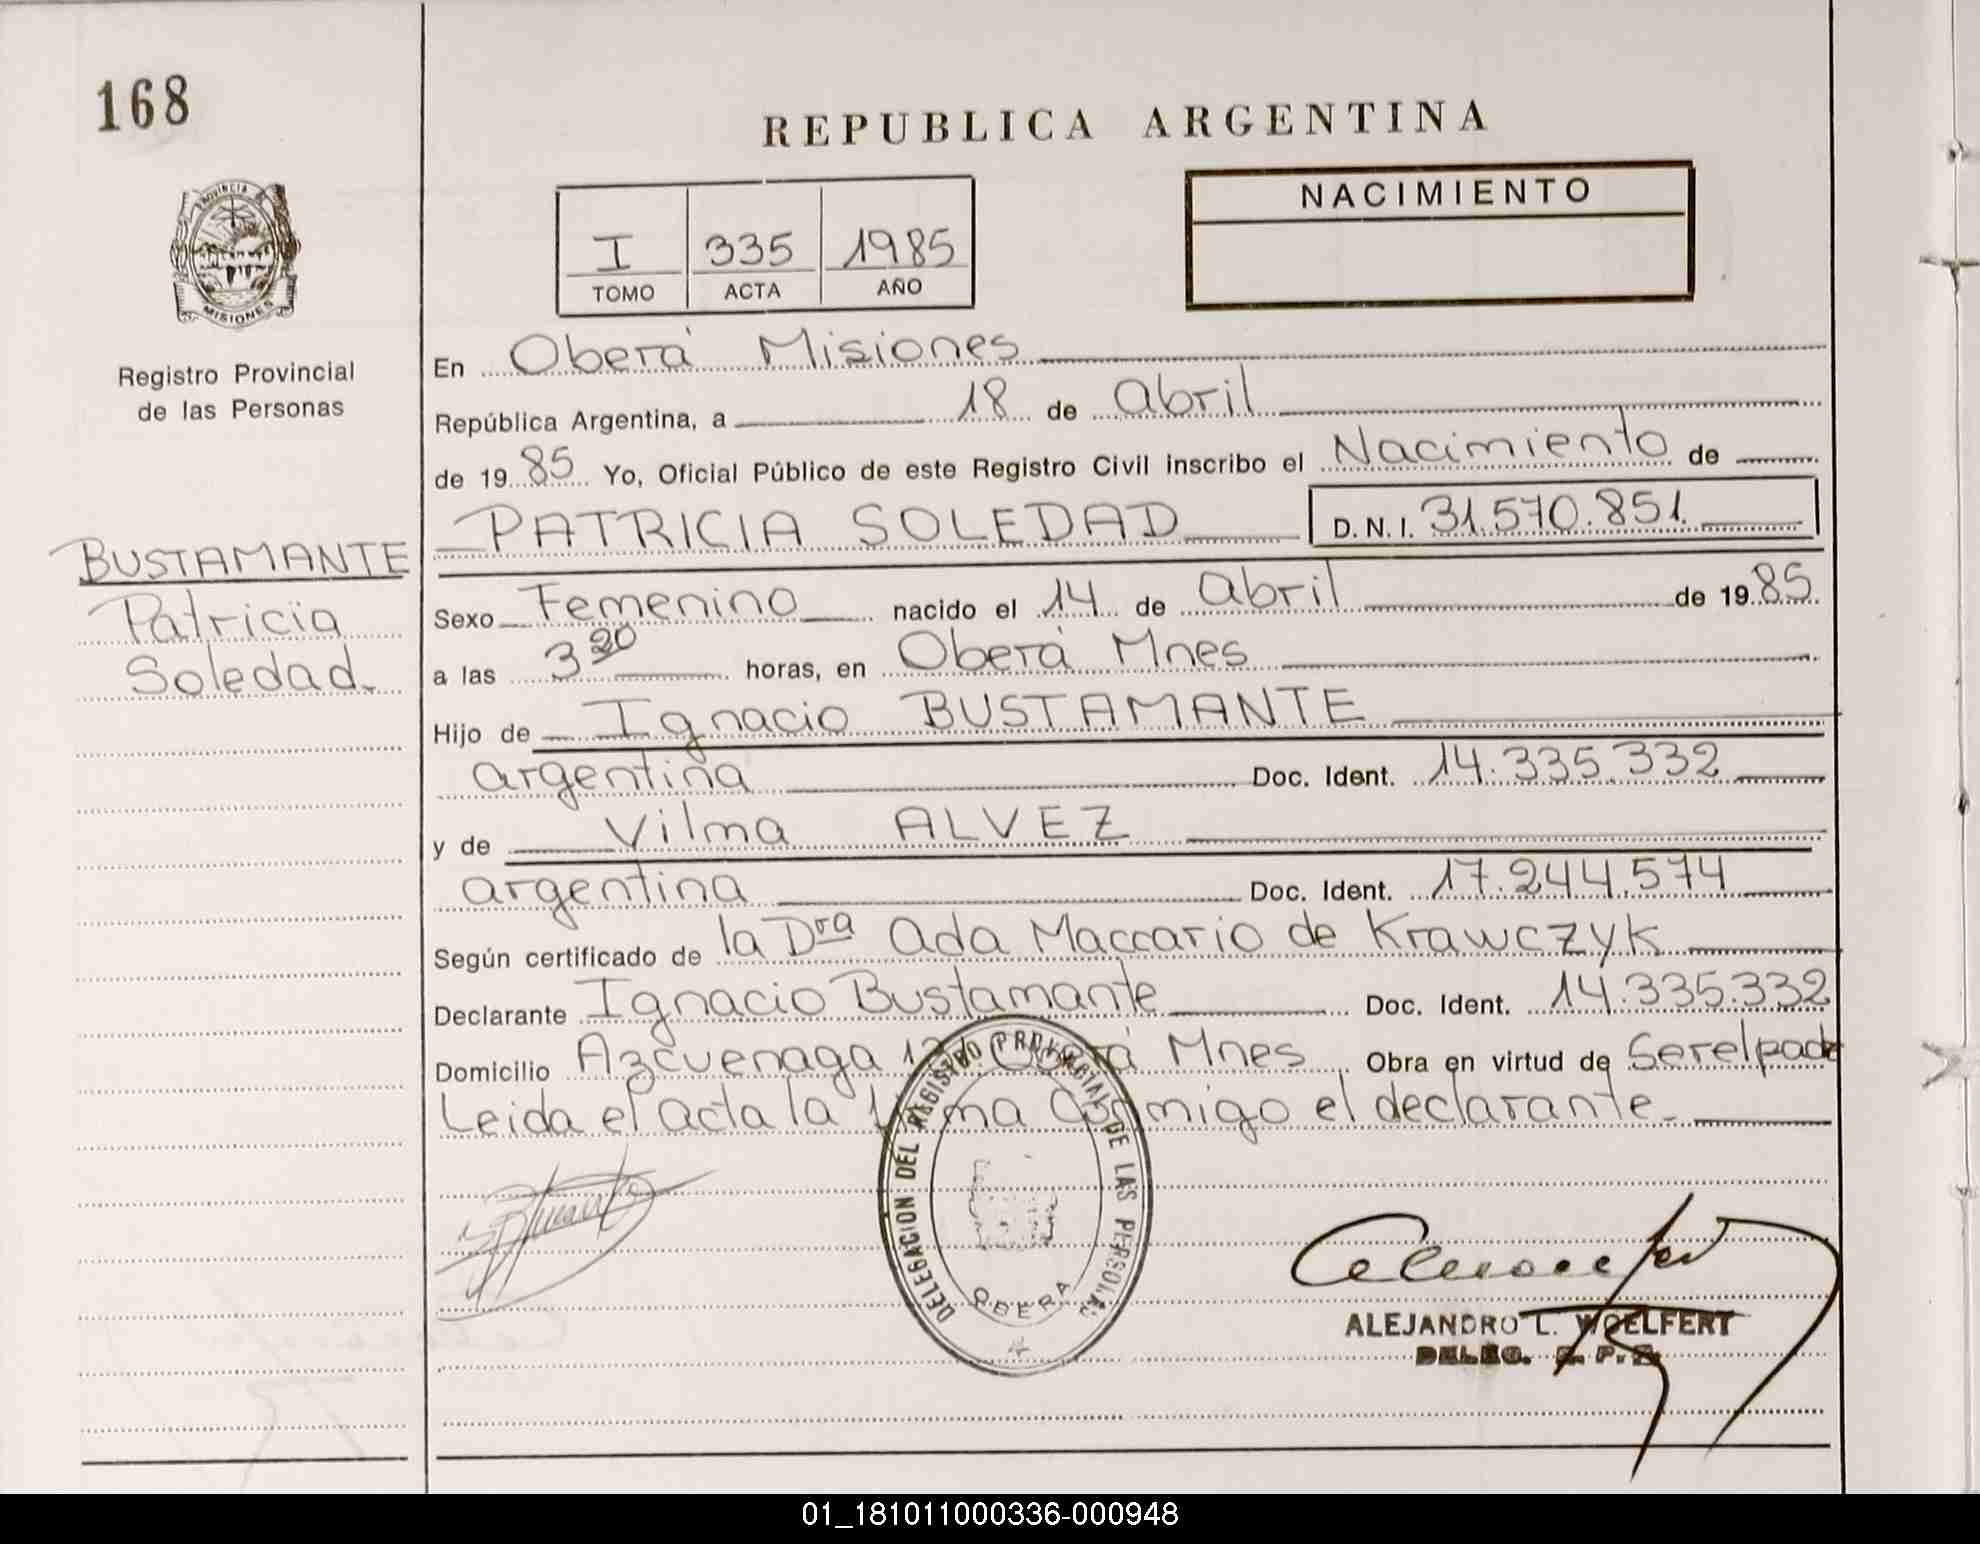 168
REPUBLICA ARGENTINA
PROVINCIA DE MISIONES
Registro Provincial
de las Personas
I 335 1985
TOMO ACTA AÑO
NACIMIENTO
BUSTAMANTE
Patricia
Soledad
En Oberá Misiones
República Argentina, a 18 de abril
de 1985 Yo, Oficial Público de este Registro Civil inscribo el Nacimiento de
PATRICIA SOLEDAD D.N.I. 31.570.851.
Sexo Femenino nacido el 14 de abril de 1985.
a las 3 20 horas, en Oberá Mnes
Hijo de Ignacio BUSTAMANTE
argentina Doc. Ident. 14.335.332
y de Vilma ALVEZ
argentina Doc. Ident. 17.244.574
Según certificado de la Dra Ada Maccario de Krawczyk
Declarante Ignacio Bustamante Doc. Ident. 14.335.332
Domicilio Azcuenaga Oberá Mnes Obra en virtud de Serelpade
Leida el acta la firma conmigo el declarante.
DELEGACION DEL REGISTRO PROVINCIAL DE LAS PERSONAS
OBERA
ALEJANDRO L. WOELFERT
DELEG. R. P. P.
01_181011000336-000948